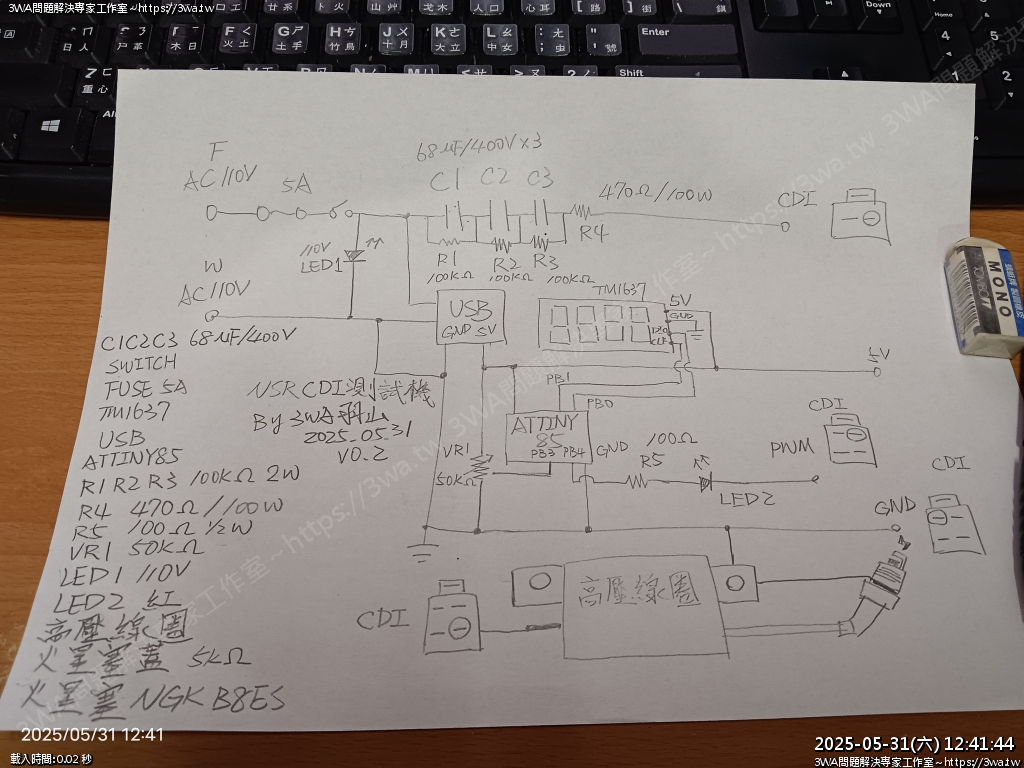 3WA問題解決專家工作室~https://3wa.tw
Enter
Shift
Home
Down
F
AC110V
5A
68uF/400V×3
C1 C2 C3
470Ω/100W
CDI
R4
110V
LED1
R1 R2 R3
100KΩ 100KΩ 100KΩ
W
AC110V
USB
GND 5V
TM1637
5V
GND
DIO
CLK
MONO
C1C2C3 68uF/400V
SWITCH
FUSE 5A
TM1637
USB
ATTINY85
R1 R2 R3 100KΩ 2W
R4 470Ω/100W
R5 100Ω 1/2W
VR1 50KΩ
LED1 110V
LED2 紅
高壓線圈
火星塞蓋 5KΩ
火星塞 NGK B8ES
NSR CDI測試機
By 3WA羽山
2025.05.31
V0.2
PB1
PB0
5V
ATTINY
85
PB3 PB4
GND
VR1
50KΩ
100Ω
R5
LED2
PWM
CDI
CDI
GND
CDI
高壓線圈
3WA問題解決專家工作室~https://3wa.tw
2025/05/31 12:41
載入時間:0.02 秒
2025-05-31(六) 12:41:44
3WA問題解決專家工作室~https://3wa.tw